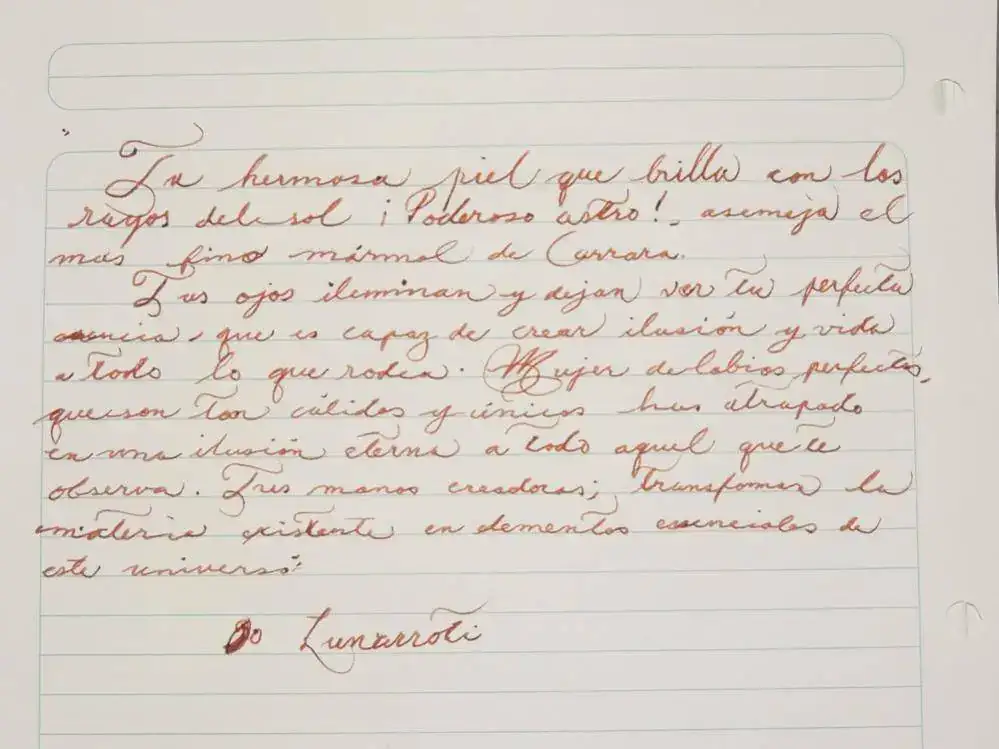 " Tu hermosa piel que brilla con los
rayos del sol ¡Poderoso astro!, asemeja el
más fino mármol de Carrara.
Tus ojos iluminan y dejan ver tu perfecta
esencia, que es capaz de crear ilusión y vida
a todo lo que rodea. Mujer de labios perfectos,
que son tan cálidos y únicos has atrapado
en una ilusión eterna a todo aquel que te
observa. Tus manos creadoras; transforman la
materia existente en elementos esenciales de
este universo."
Lunarroti